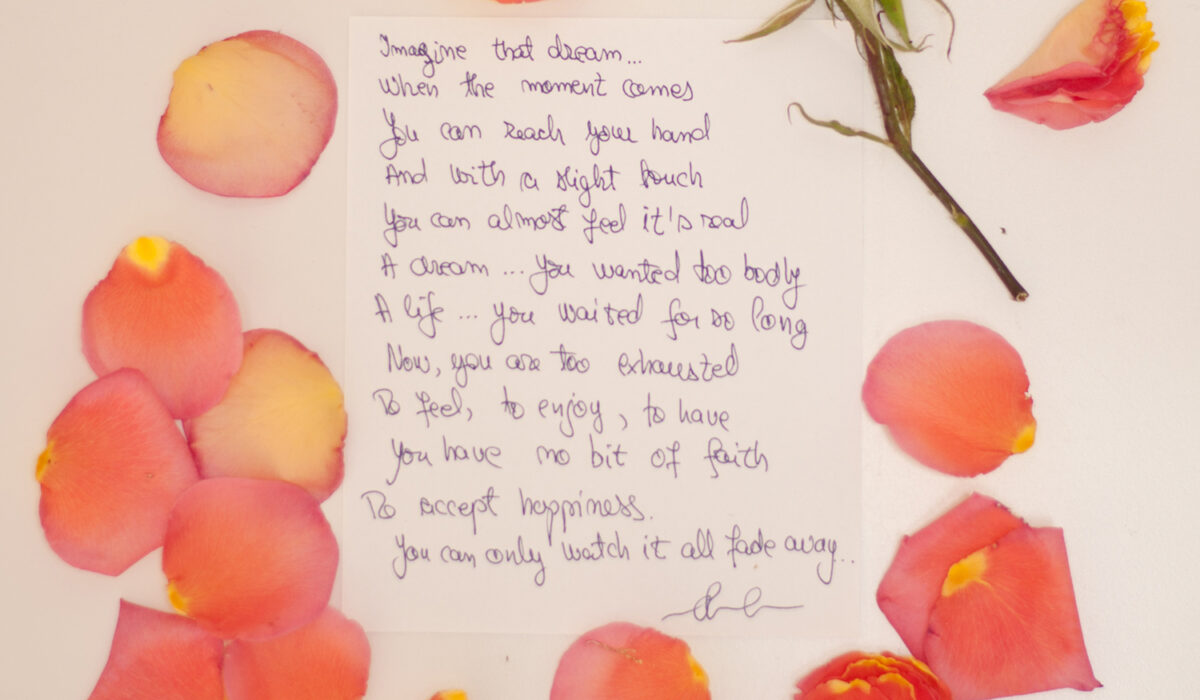 Imagine that dream...
When the moment comes
You can reach your hand
And with a slight touch
You can almost feel it's real
A dream ... you wanted too badly
A life ... you waited for so long
Now, you are too exhausted
To feel, to enjoy, to have
You have no bit of faith
To accept happiness.
You can only watch it all fade away...